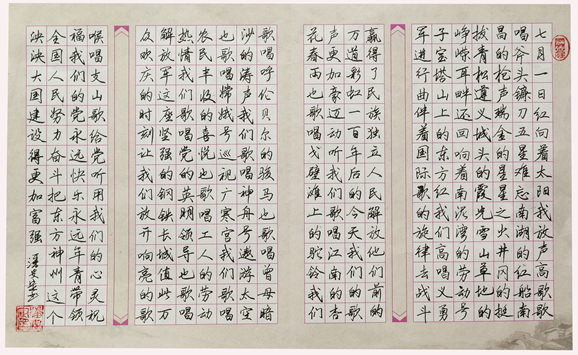 七月一日红向着太阳我放声高歌歌
唱斧头镰刀五星难忘南湖的红船南
昌的枪声瑞金的星星之火井冈的挺
拔青松遵义城头的霞光雪山草地的
峥嵘耳畔还回响着南泥湾的劳动号
子宝塔山上的东方红我们高唱义勇
军进行曲伴着国际歌的旋律去战斗
赢得了民族独立人民解放他们前的
万道彩虹一百年后的今天我们的
声更加豪迈动听我们歌唱江南的杏
花春雨也歌唱戈壁滩上的驼铃我们
歌唱呼伦贝尔的骏马也歌唱曾母暗
沙的歌神舟号遨游太空
也歌唱嫦娥号巡视广寒宫我们歌唱
农民丰收的喜悦也歌唱工人的劳动
热情我们歌唱党的英明领导也歌唱
解放军这坚强的钢铁长城值此万
众欢庆的时刻让我们放开响亮的
喉唱支山歌给党听用我们的心灵祝
福我们的党永远快乐永远年青带领
全国人民努力奋斗把东方神州这个
泱泱大国建设得更加富强